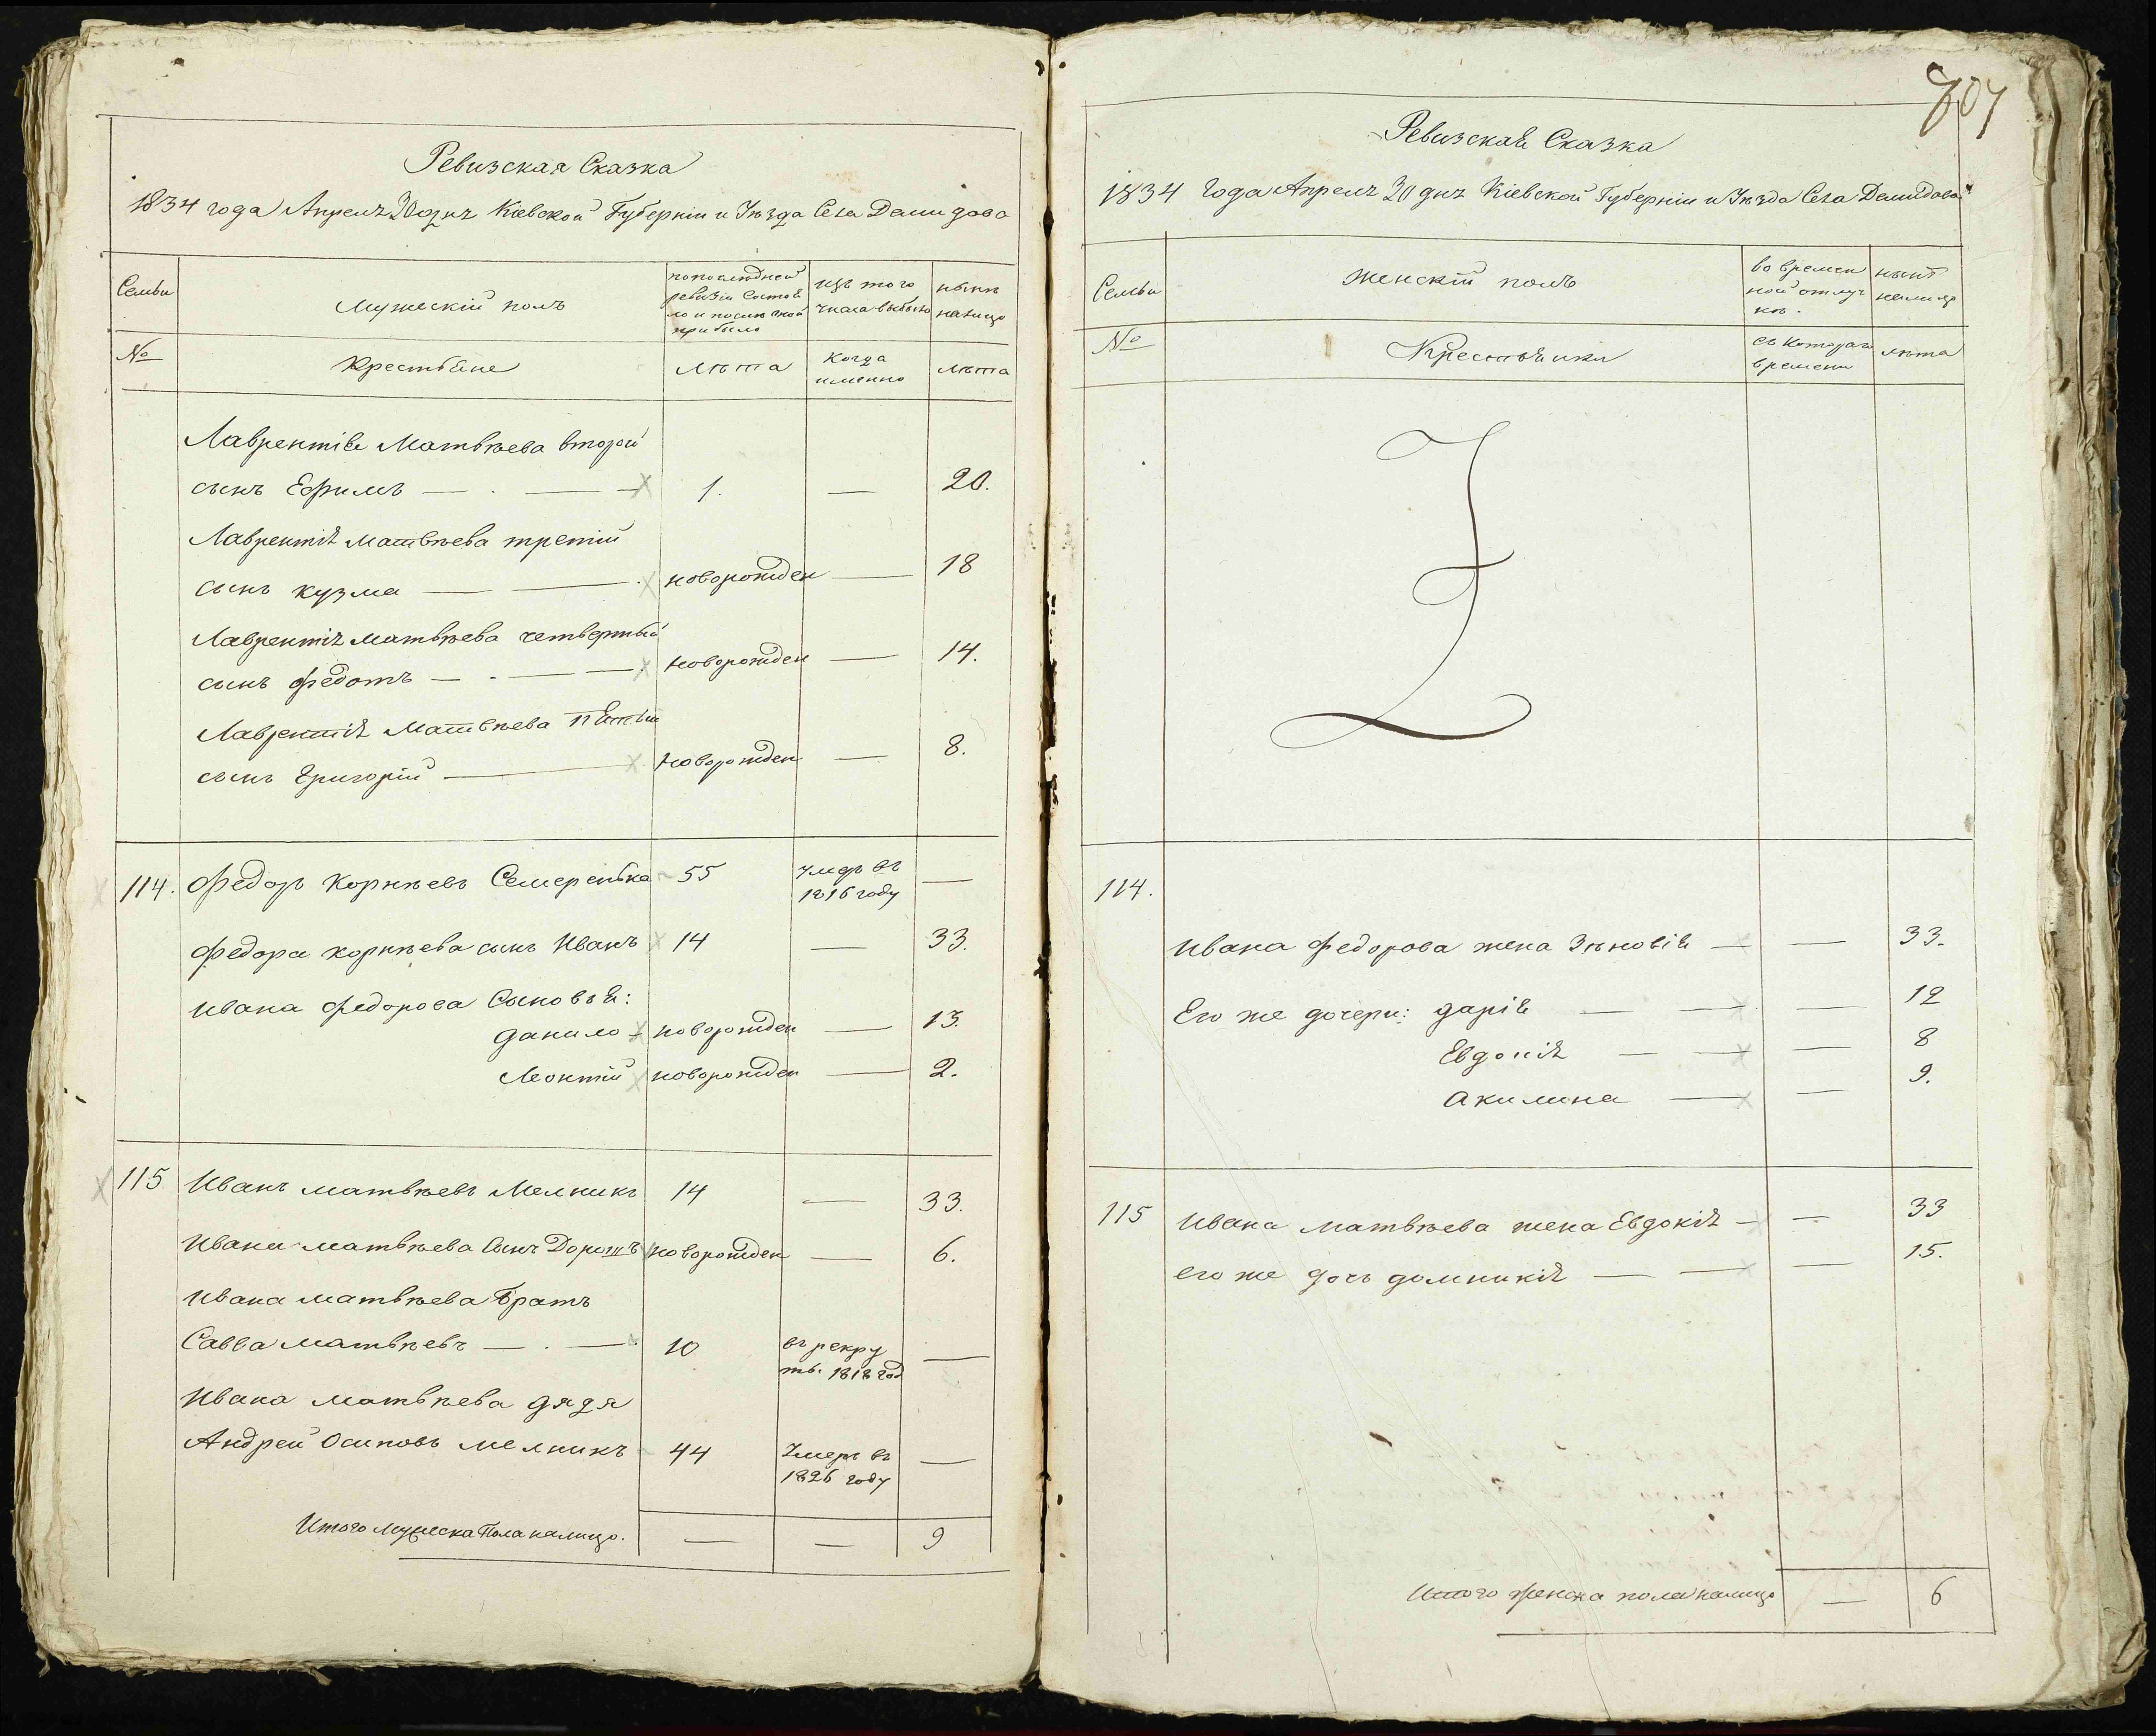 Ревизская Сказка
1834 года Апреля 30 дня Кіевской Губерніи и Уѣзда Села Демидова
Семьи
Мужескій полъ
по последней ревизіи состояло и после оной прибыло
изъ того числа выбыло
нынѣ налицо
№
Крестьяне
Лѣта
Когда именно
лѣта
Лаврентія Матвѣева второй
сынъ Ефимъ — . — 1. — 20.
Лаврентія Матвѣева третій
сынъ Кузма — — новорожден — 18
Лаврентія Матвѣева четвертый
сынъ Федотъ — . — — новорожден — 14.
Лаврентія Матвѣева пятый
сынъ Григорій — новорожден — 8.
114. Федоръ Корнѣевъ Семеренька 55 умеръ въ 1816 году —
Федора Корнѣева сынъ Иванъ 14 — 33.
Ивана Федорова Сыновья:
Данило — новорожден — 13.
Леонтій новорожден — 2.
115 Иванъ Матвѣевъ Мелникъ 14 — 33.
Ивана Матвѣева Сынъ Дорошъ новорожден — 6.
Ивана Матвѣева Братъ
Савва Матвѣевъ — . — 10 въ рекруты. 1818 год —
Ивана Матвѣева дядя
Андрей Осиповъ мелникъ 44 Умеръ въ 1826 году —
Итого мужеска Пола налицо. — — 9
707
Ревизская Сказка
1834 Года Апреля 30 дня Кіевской Губерніи и Уѣзда Села Демидова
Семьи
Женскій полъ
во временной отлучкѣ.
нынѣ налицо
№
Крестьянки
съ котораго времени
лѣта
114.
Ивана Федорова жена Зѣновія — — 33.
Его же дочери: Дарія — — — 12
Евдокія — — — 8
Акилина — — 9.
115 Ивана Матвѣева жена Евдокія — — 33
его же дочь Домникія — — — 15.
Итого женска пола налицо — 6